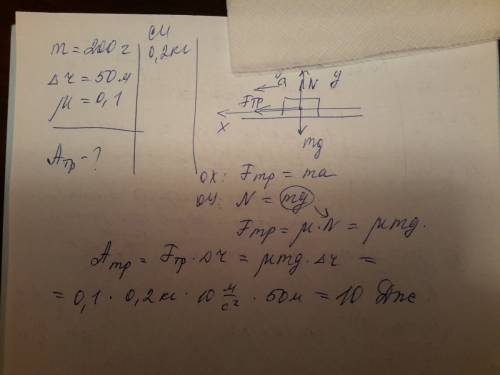 СИ
m = 200г 0,2кг
Δr = 50м
μ = 0,1
Aтр - ?
a N y
Fтр
x
mg
OX: Fтр = ma
OY: N = mg
Fтр = μ·N = μmg.
Aтр = Fтр · Δr = μmg · Δr =
= 0,1 · 0,2кг · 10 м/с² · 50м = 10 Дж